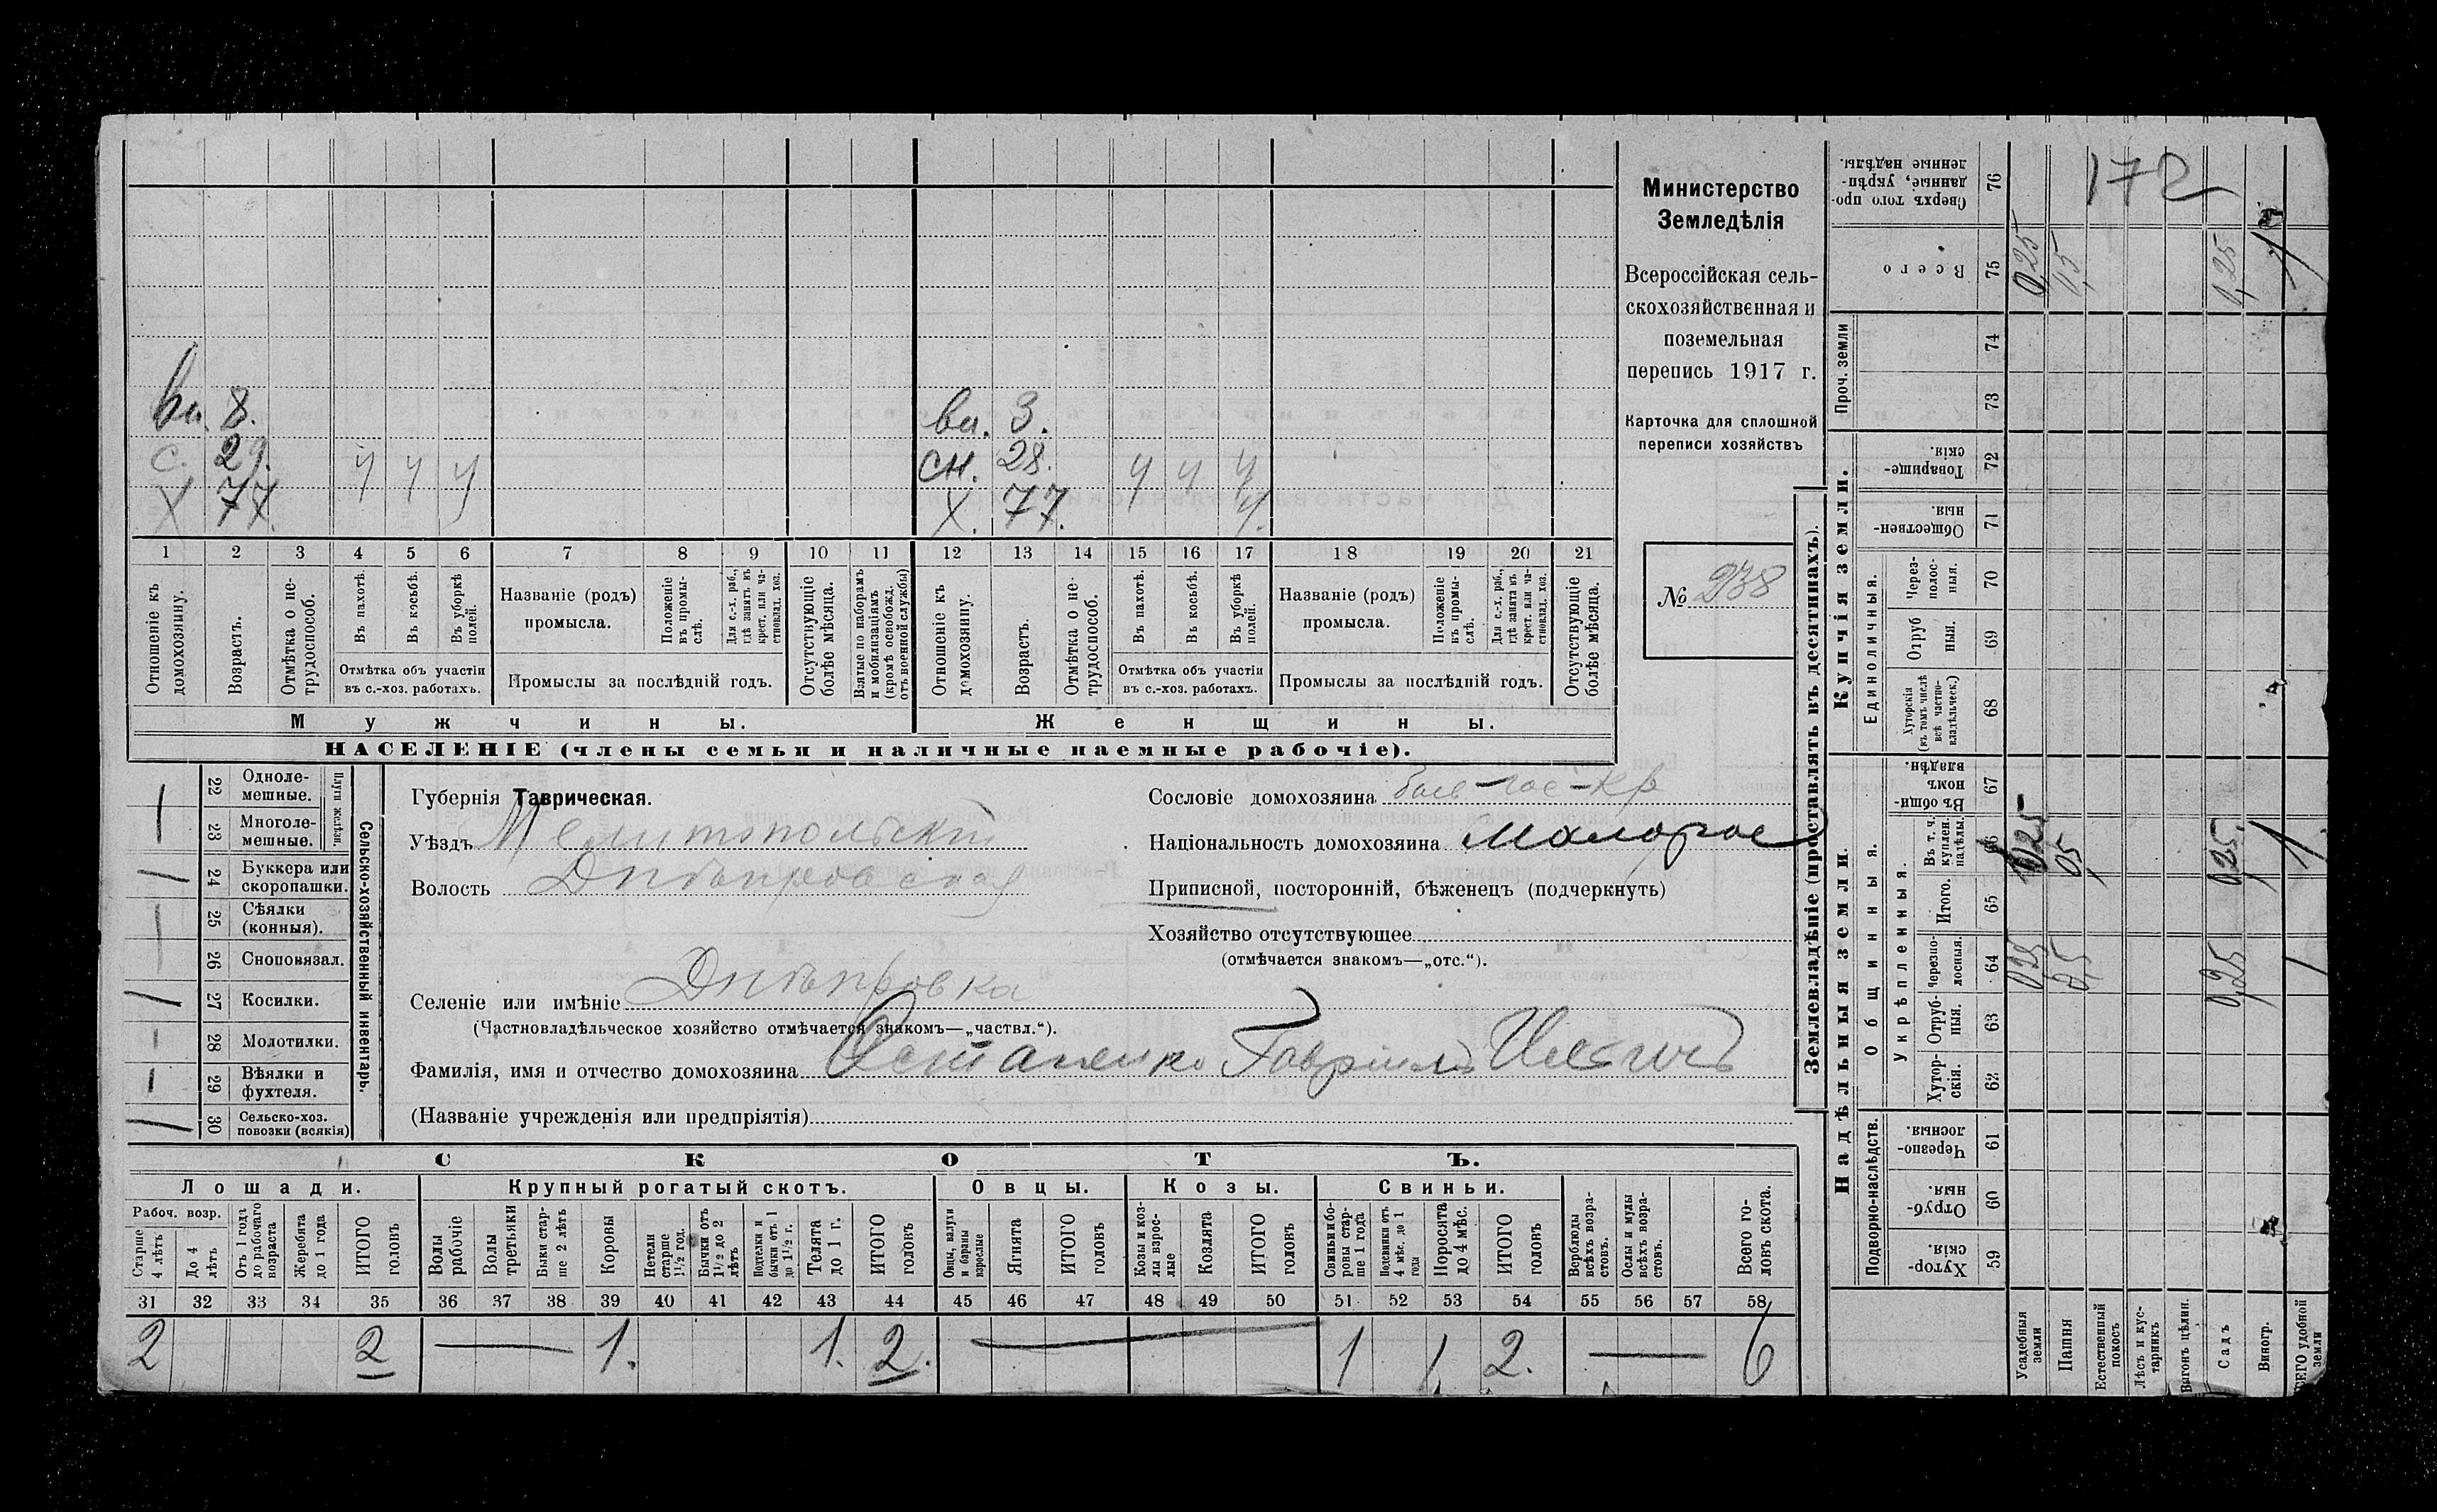 172
вн. 8. вн. 3.
с. 29. ч ч ч сн. 28. ч ч ч
х 77. х. 77. ч.
1 2 3 4 5 6 7 8 9 10 11 12 13 14 15 16 17 18 19 20 21
Отношеніе къ домохозяину.
Возрастъ.
Отмѣтка о не-трудоспособ.
Въ пахотѣ.
Въ косьбѣ.
Въ уборкѣ полей.
Отмѣтка объ участіи въ с.-хоз. работахъ.
Названіе (родъ) промысла.
Положеніе въ промы-слѣ.
Для с.-х. раб., гдѣ занятъ въ крест. или ча-стновлад. хоз.
Промыслы за послѣдній годъ.
Отсутствующіе болѣе мѣсяца.
Взятые по наборамъ и мобилизаціямъ (кромѣ освобожд. отъ военной службы)
Отношеніе къ домохозяину.
Возрастъ.
Отмѣтка о не-трудоспособ.
Въ пахотѣ.
Въ косьбѣ.
Въ уборкѣ полей.
Отмѣтка объ участіи въ с.-хоз. работахъ.
Названіе (родъ) промысла.
Положеніе въ промы-слѣ.
Для с.-х. раб., гдѣ занята въ крест. или ча-стновлад. хоз.
Промыслы за послѣдній годъ.
Отсутствующіе болѣе мѣсяца.
Мужчины. Женщины.
НАСЕЛЕНІЕ (члены семьи и наличные наемные рабочіе).
Министерство
Земледѣлія
Всероссійская сель-
скохозяйственная и
поземельная
перепись 1917 г.
Карточка для сплошной
переписи хозяйствъ
№ 238
Сельско-хозяйственный инвентарь.
Плуги желѣзн.
22 Одноле-мешные.
23 Многоле-мешные.
24 Буккера или скоропашки.
25 Сѣялки (конныя).
26 Сноповязал.
27 Косилки.
28 Молотилки.
29 Вѣялки и фухтеля.
30 Сельско-хоз. повозки (всякія)
Губернія Таврическая.
Уѣздъ Мелитопольскій
Волость Днѣпровская
Селеніе или имѣніе Днѣпровка
(Частновладѣльческое хозяйство отмѣчается знакомъ—„частвл.“).
Фамилія, имя и отчество домохозяина Остапенко Гавріилъ Ильичъ
(Названіе учрежденія или предпріятія)
Сословіе домохозяина гос-кр
Національность домохозяина Малорос
Приписной, посторонній, бѣженецъ (подчеркнуть)
Хозяйство отсутствующее
(отмѣчается знакомъ—„отс.“).
СКОТЪ.
Лошади. Крупный рогатый скотъ. Овцы. Козы. Свиньи.
Рабоч. возр.
Старше 4 лѣтъ
До 4 лѣтъ
Отъ 1 годъ до рабочаго возраста
Жеребята до 1 года
ИТОГО головъ
Волы рабочіе
Волы третьяки
Быки стар-ше 2 лѣтъ
Коровы
Нетели старше 1½ год.
Бычки отъ 1½ до 2 лѣтъ
Подтелки и бычки отъ 1 до 1½ г.
Телята до 1 г.
ИТОГО головъ
Овцы, валухи и бараны взрослые
Ягнята
ИТОГО головъ
Козы и коз-лы взрос-лые
Козлята
ИТОГО головъ
Свиньи и бо-ровы стар-ше 1 года
Подсвинки отъ 4 мѣс. до 1 года
Поросята до 4 мѣс.
ИТОГО головъ
Верблюды всѣхъ возра-стовъ.
Ослы и мулы всѣхъ возра-стовъ.
Всего го-ловъ скота.
31 32 33 34 35 36 37 38 39 40 41 42 43 44 45 46 47 48 49 50 51 52 53 54 55 56 57 58
2 2 — 1. 1. 2. — 1 1 2. — 6
Землевладѣніе (проставлять въ десятинахъ).
Купчія земли.
Надѣльныя земли.
76 Сверхъ того про-данные, укрѣп-ленные надѣлы.
75 Всего 0,25 0,5 0,25 1
Проч. земли
74
73
72 Товарище-скія.
71 Обществен-ныя.
Единоличныя.
70 Через-полос-ныя.
69 Отруб ныя.
68 Хуторскія (въ томъ числѣ всѣ частно-владѣльческ.)
Общинныя.
67 Въ общин-номъ владѣн.
Укрѣпленныя.
66 Въ т. ч. куплен. надѣлы.
65 Итого. 0,25 0,5 0,25 1
64 Черезпо-лосныя. 0,25 0,5 0,25 1
63 Отруб-ныя.
62 Хутор-скія.
Подворно-наслѣдств.
61 Черезпо-лосныя.
60 Отруб-ныя.
59 Хутор-скія.
Усадебныя земли
Пашня
Естественный покосъ
Лѣсъ и кус-тарникъ
Выгонъ цѣлин.
Садъ
Виногр.
ВСЕГО удобной земли